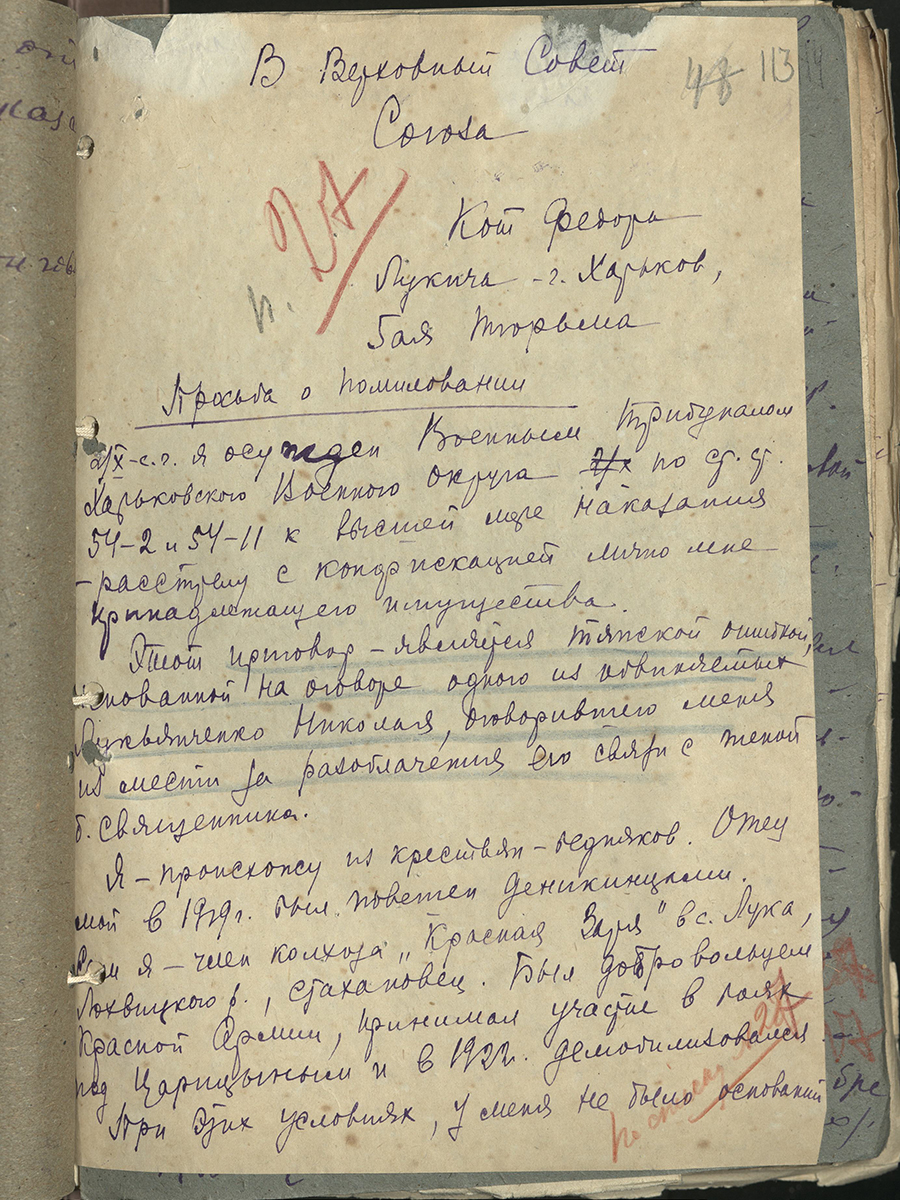 48 113 114
В Верховный Совет
Союза
п. 27
Кот Федора
Лукича - г. Харьков,
Тюрьма
Просьба о помиловании
2/X-с.г. я осужден Военным Трибуналом
Харьковского Военного округа по ст. ст.
54-2 и 54-11 к высшей мере наказания
- расстрелу с конфискацией лично мне
принадлежащего имущества.
Этот приговор - является тяжкой ошибкой,
основанной на оговоре одного из обвиняемых
Лукьянченко Николая, оговорившего меня
из мести за разоблачения его связи с женой
б. священника.
Я - происхожу из крестьян - бедняков. Отец
мой в 1919г. был повешен деникинцами.
Сам я - член колхоза „Красная Заря" в с. Лука,
Лохвицкого р., стахановец. Был добровольцем
Красной Армии, принимал участие в боях
под Царицыным и в 1922г. демобилизовался.
При этих условиях, у меня не было оснований